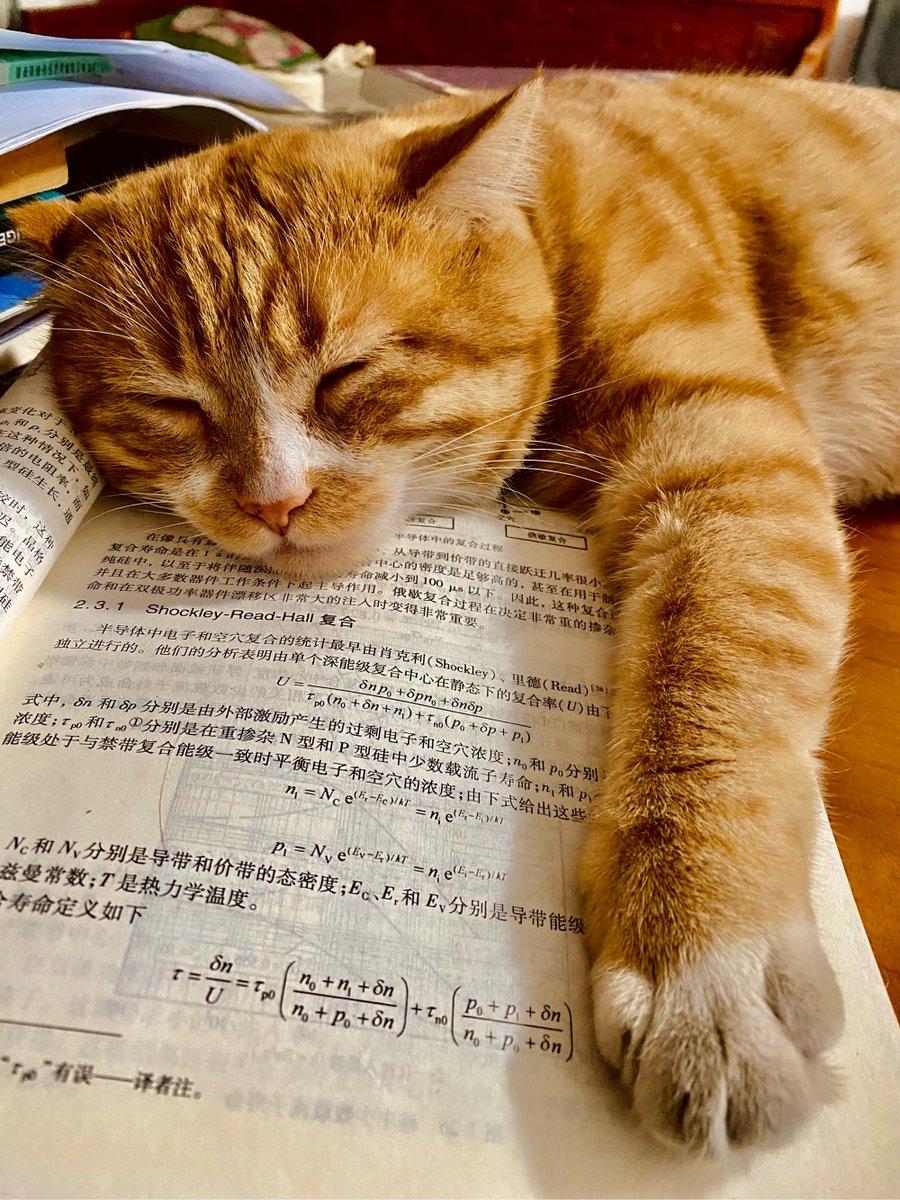 变化对于
和 ρ, 分别是
在这种情况下,
倍的电阻率, 而
型硅生长, 通
较时, 这种
迟。晶格
能电子
禁带
复合
俄歇复合
半导体中的复合过程
在像只有 从导带到价带的直接跃迁几率很小
复合寿命是在 1 s 合中心的密度是足够高的, 甚至在用于制
纯硅中, 以至于将伴随深 寿命减小到 100 μs 以下。因此, 这种复合过
并且在大多数器件工作条件下起主导作用。俄歇复合过程在决定非常重的掺杂
命和在双极功率器件漂移区非常大的注入时变得非常重要。
2.3.1 Shockley-Read-Hall 复合
半导体中电子和空穴复合的统计最早由肖克利(Shockley)、里德(Read)[38]
独立进行的。他们的分析表明由单个深能级复合中心在静态下的复合率(U)由下
U = (δnp₀ + δpn₀ + δnδp) / (τp0(n₀ + δn + n₁) + τn0(p₀ + δp + p₁))
式中, δn 和 δp 分别是由外部激励产生的过剩电子和空穴浓度; n₀ 和 p₀ 分别
浓度; τp0 和 τn0① 分别是在重掺杂 N 型和 P 型硅中少数载流子寿命; n₁ 和 p₁
能级处于与禁带复合能级一致时平衡电子和空穴的浓度; 由下式给出这些
n₁ = NC e^(Er−EC)/kT = ni e^(Er−Ei)/kT
p₁ = NV e^(EV−Er)/kT = ni e^(Ei−Er)/kT
NC 和 NV 分别是导带和价带的态密度; EC、Er 和 EV 分别是导带能级
兹曼常数; T 是热力学温度。
寿命定义如下
τ = δn/U = τp0((n₀ + n₁ + δn)/(n₀ + p₀ + δn)) + τn0((p₀ + p₁ + δn)/(n₀ + p₀ + δn))
“τp0”有误——译者注。